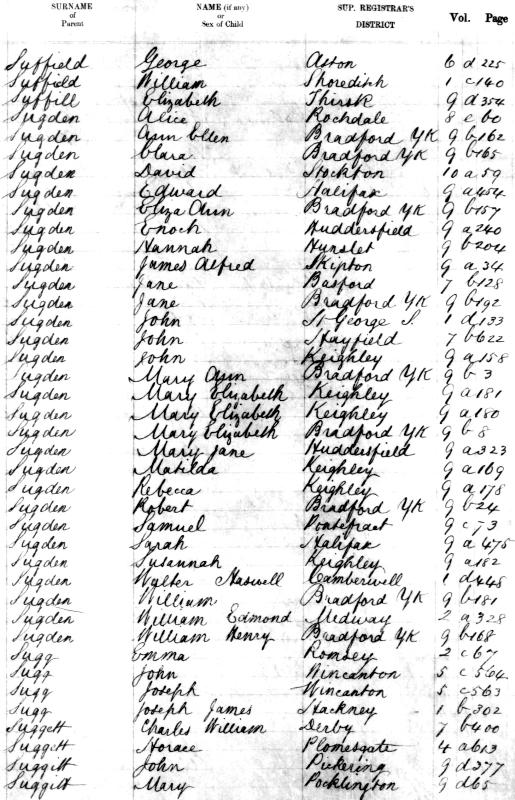 SURNAME of Parent NAME (if any) or Sex of Child SUP. REGISTRAR'S DISTRICT Vol. Page
Suffield George Aston 6 d 225
Suffield William Shoreditch 1 c 140
Suffill Elizabeth Thirsk 9 d 354
Sugden Alice Rochdale 8 e 60
Sugden Ann Ellen Bradford YK 9 b 162
Sugden Clara Bradford YK 9 b 165
Sugden David Stockton 10 a 59
Sugden Edward Halifax 9 a 454
Sugden Eliza Ann Bradford YK 9 b 157
Sugden Enoch Huddersfield 9 a 240
Sugden Hannah Hunslet 9 b 204
Sugden James Alfred Skipton 9 a 34
Sugden Jane Basford 7 b 128
Sugden Jane Bradford YK 9 b 192
Sugden John St George S. 1 d 133
Sugden John Hayfield 7 b 622
Sugden John Keighley 9 a 158
Sugden Mary Ann Bradford YK 9 b 3
Sugden Mary Elizabeth Keighley 9 a 181
Sugden Mary Elizabeth Keighley 9 a 180
Sugden Mary Elizabeth Bradford YK 9 b 8
Sugden Mary Jane Huddersfield 9 a 323
Sugden Matilda Keighley 9 a 169
Sugden Rebecca Keighley 9 a 178
Sugden Robert Bradford YK 9 b 24
Sugden Samuel Pontefract 9 c 73
Sugden Sarah Halifax 9 a 475
Sugden Susannah Keighley 9 a 182
Sugden Walter Haswell Camberwell 1 d 448
Sugden William Bradford YK 9 b 181
Sugden William Edmond Medway 2 a 328
Sugden William Henry Bradford YK 9 b 168
Sugg Emma Romsey 2 c 67
Sugg John Wincanton 5 c 564
Sugg Joseph Wincanton 5 c 563
Sugg Joseph James Hackney 1 b 302
Suggett Charles William Derby 7 b 400
Suggett Horace Plomesgate 4 a 613
Suggitt John Pickering 9 d 377
Suggitt Mary Pocklington 9 d 65